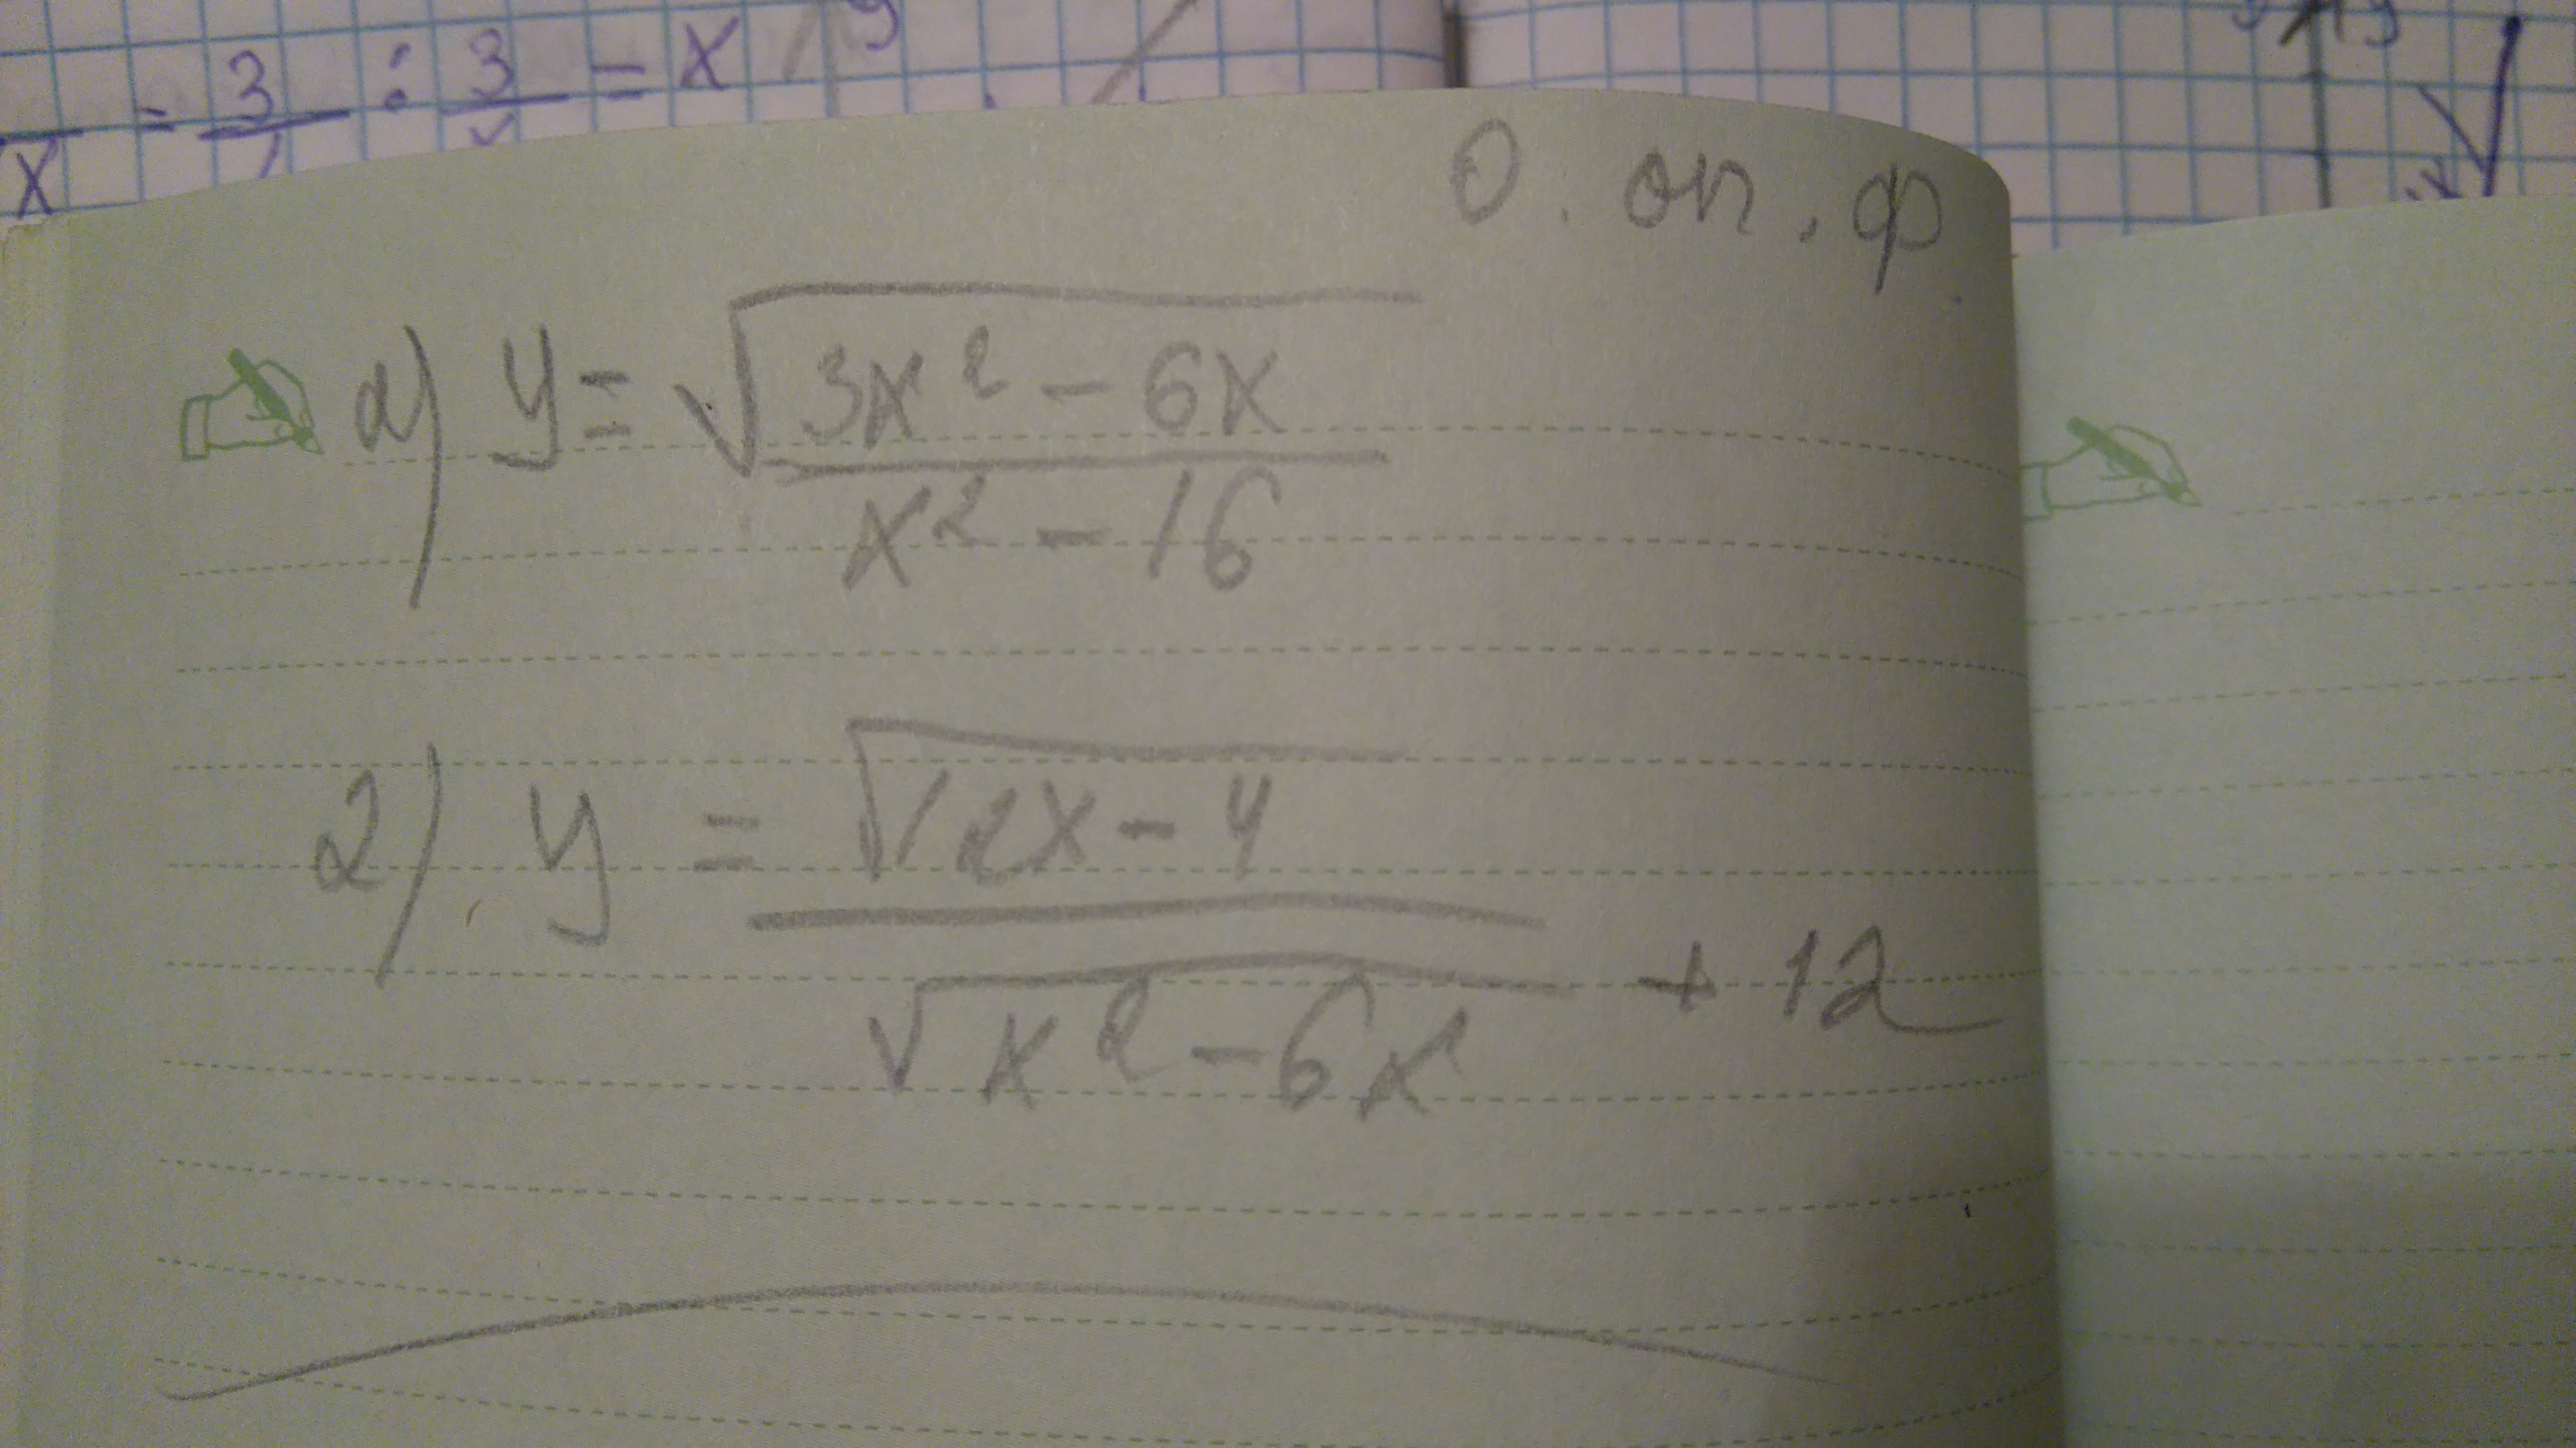 x = 3/1 : 3/x = x
О. оп. ф.
а) y = √(3x² - 6x / x² - 16)
2). y = √(12x - 4) / √(x² - 6x) + 12